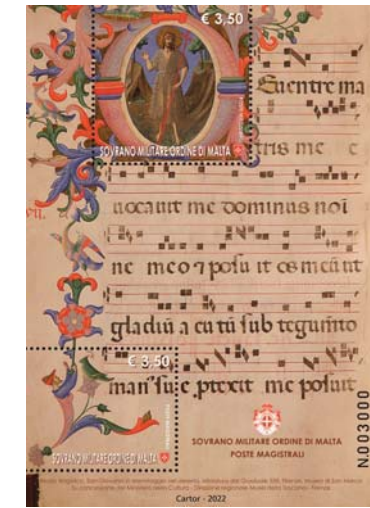 € 3,50
SOVRANO MILITARE ORDINE DI MALTA
Euentre ma
tris me
uocauit me dominus noi
ne meo ⁊ posu it os meũ ut
gladiũ a cu tũ sub tegumto
man' su e ptexit me posuit
€ 3,50
SOVRANO MILITARE ORDINE DI MALTA
SOVRANO MILITARE ORDINE DI MALTA
POSTE MAGISTRALI
N.003000
Cartor - 2022